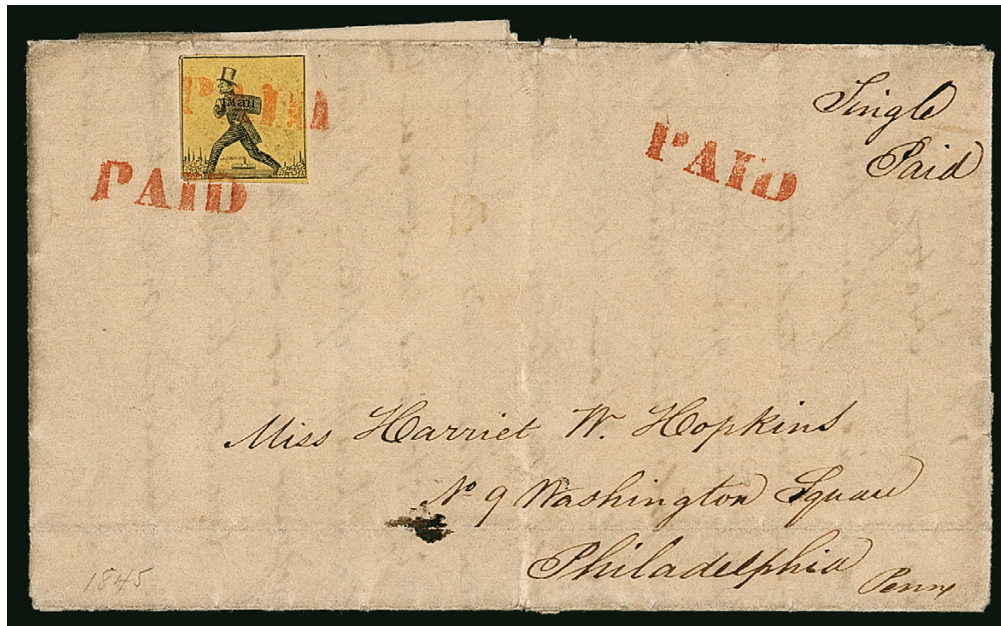 PAID
Mail
PAID
PAID
Single
Paid
Miss Harriet W. Hopkins
No 9 Washington Square
Philadelphia
Penna
1845